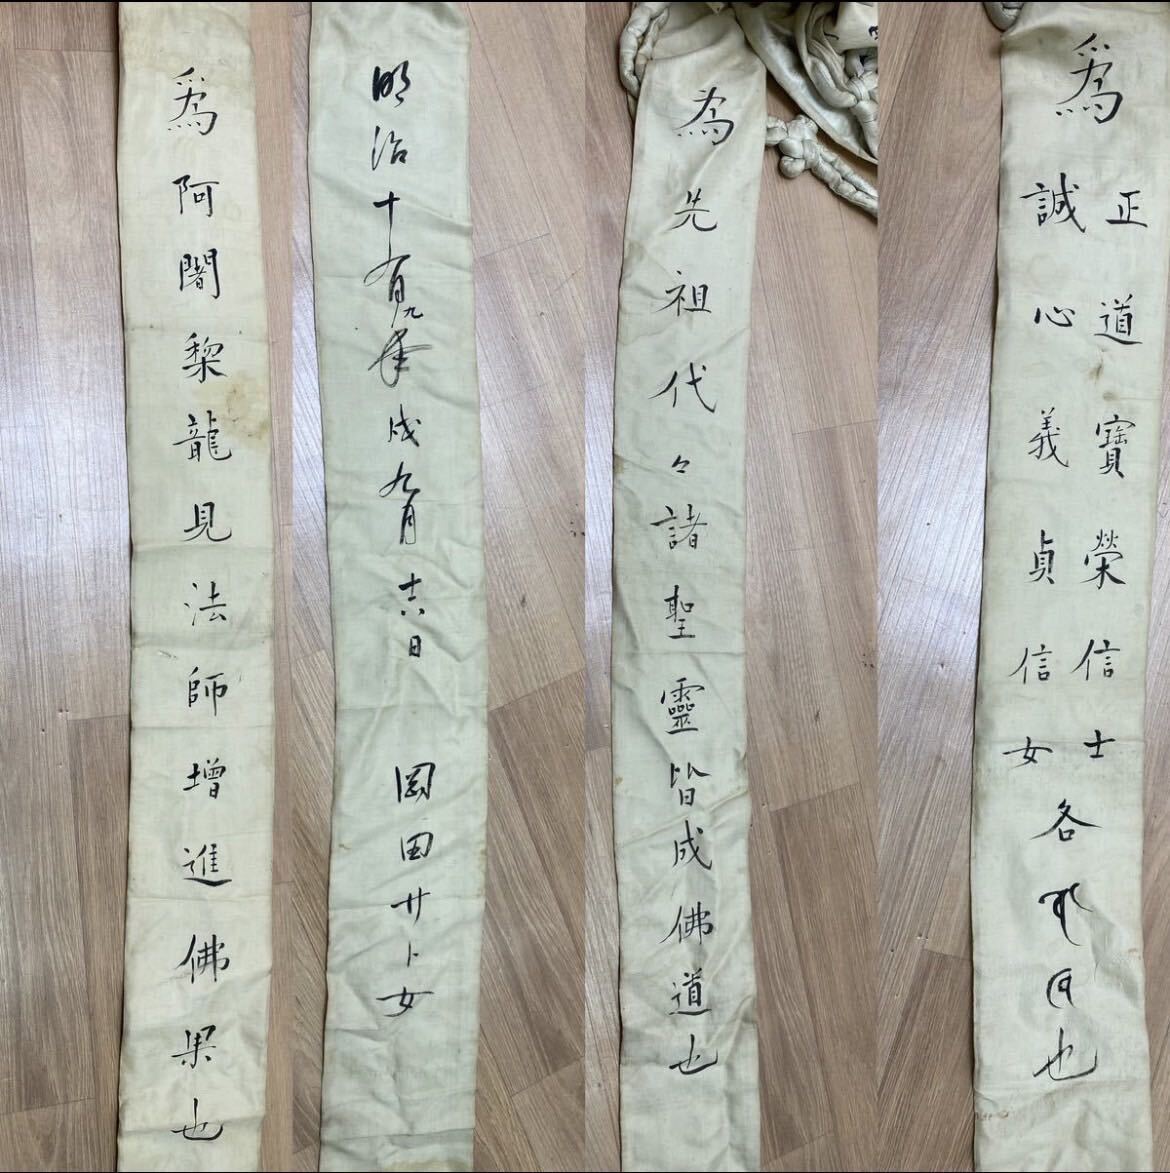 爲阿闍梨龍見法師增進佛果也
明治十有九年戌九月十六日 岡田サト女
為先祖代々諸聖靈皆成佛道也
爲
正道寶榮信士
誠心義貞信女
各也